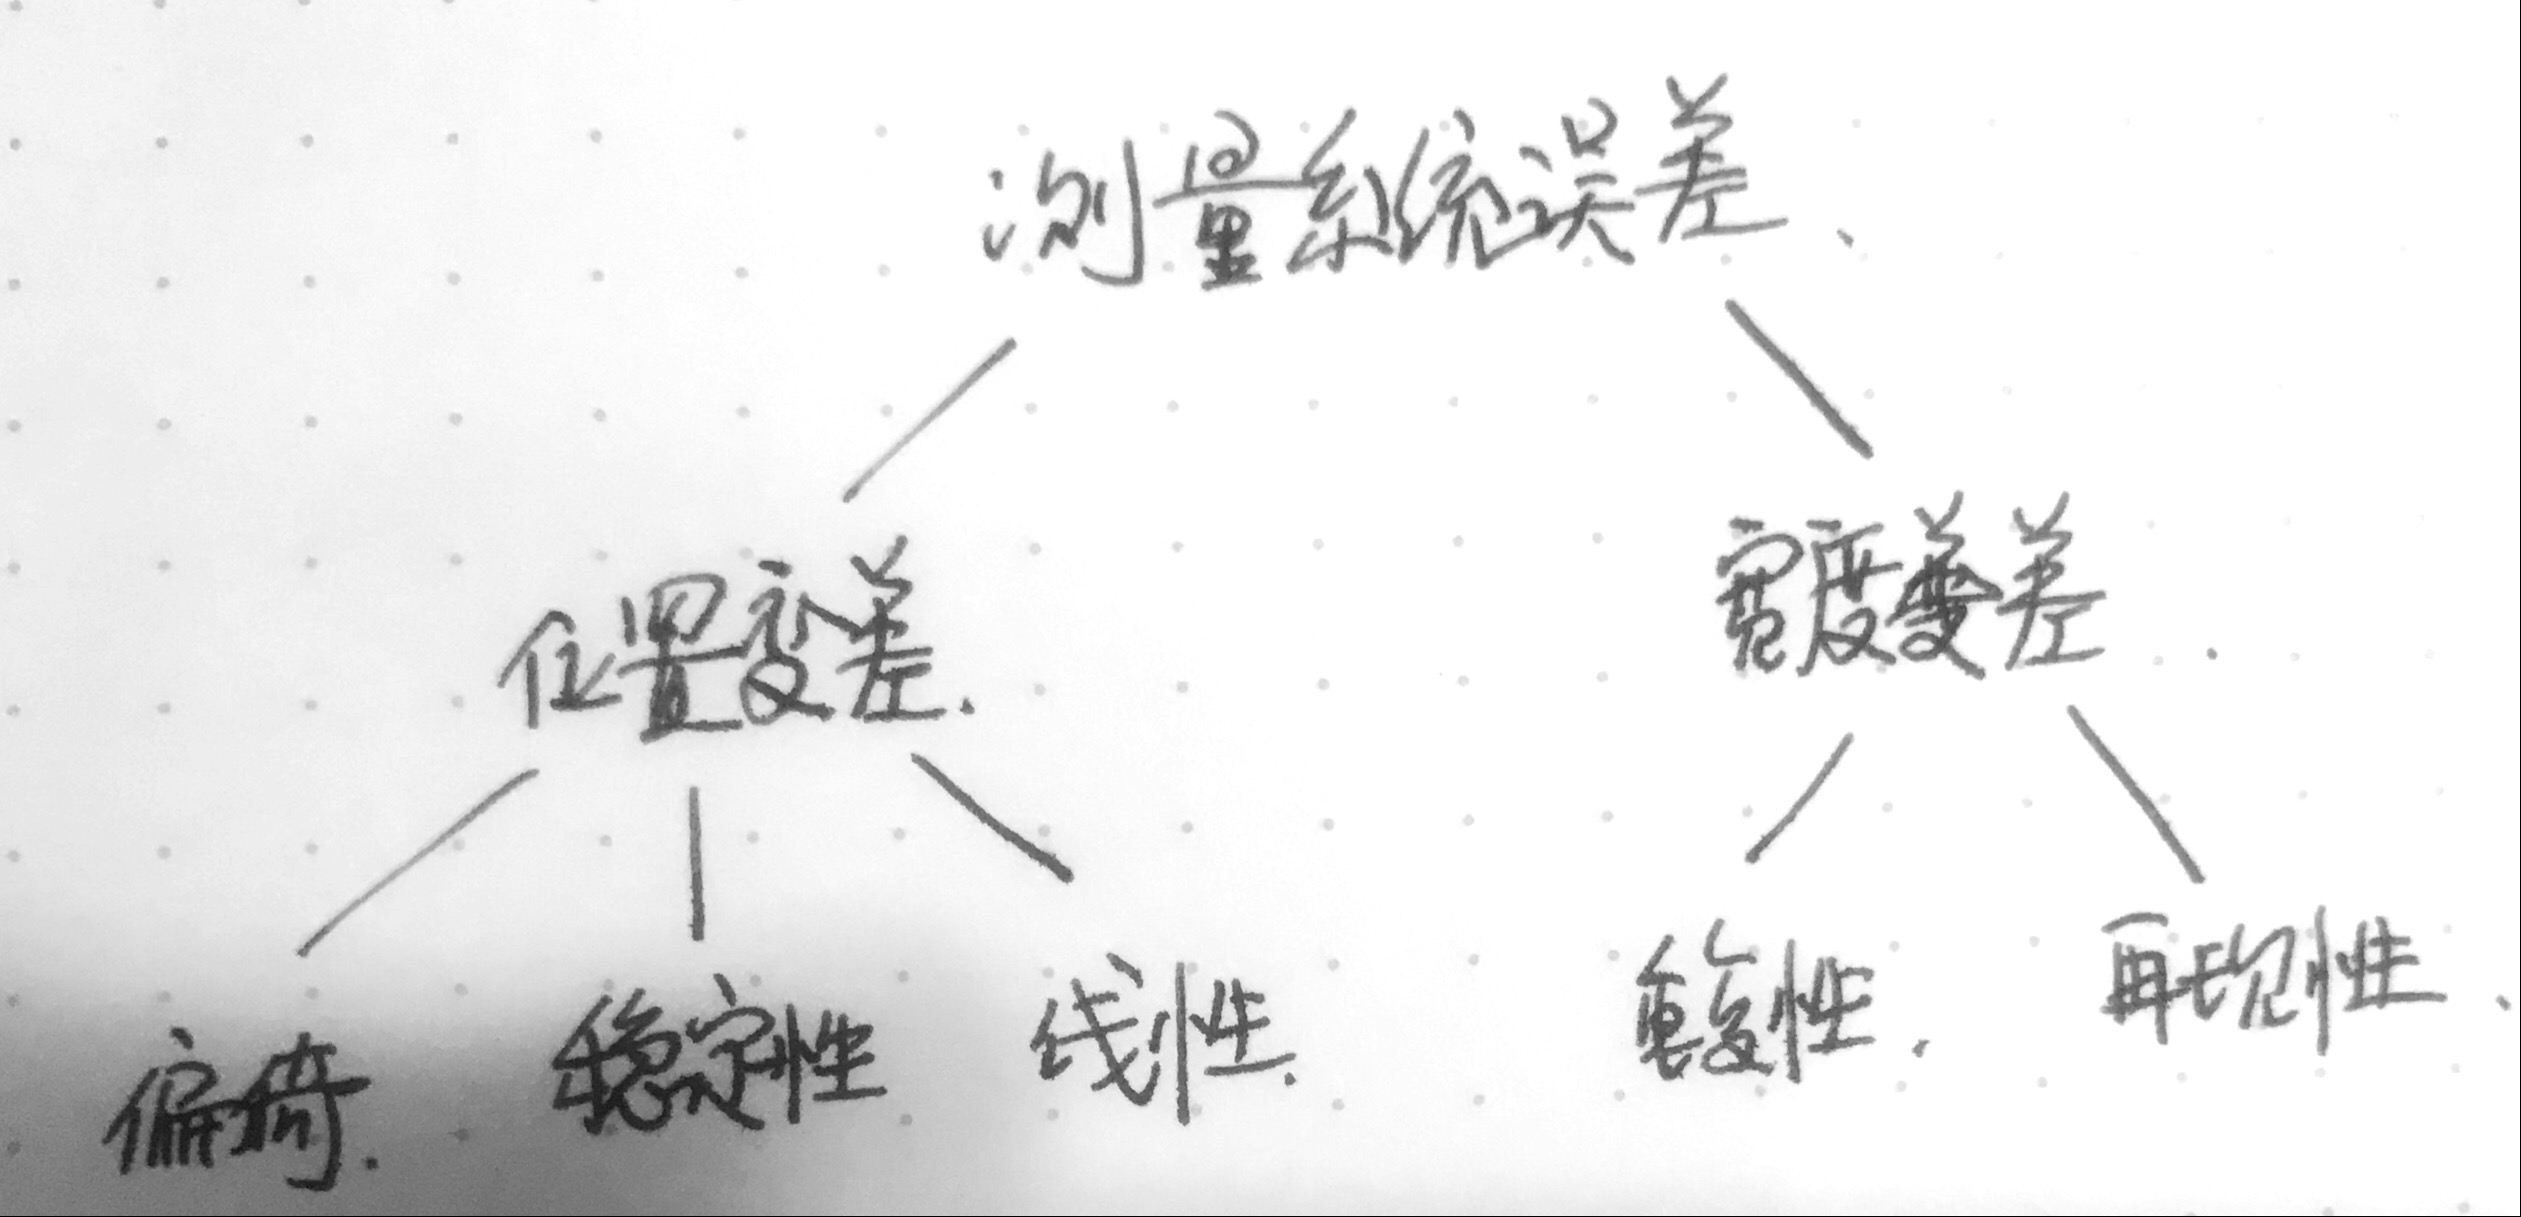 测量系统误差、
位置变差.
宽度变差.
偏倚.
稳定性
线性.
重复性.
再现性、